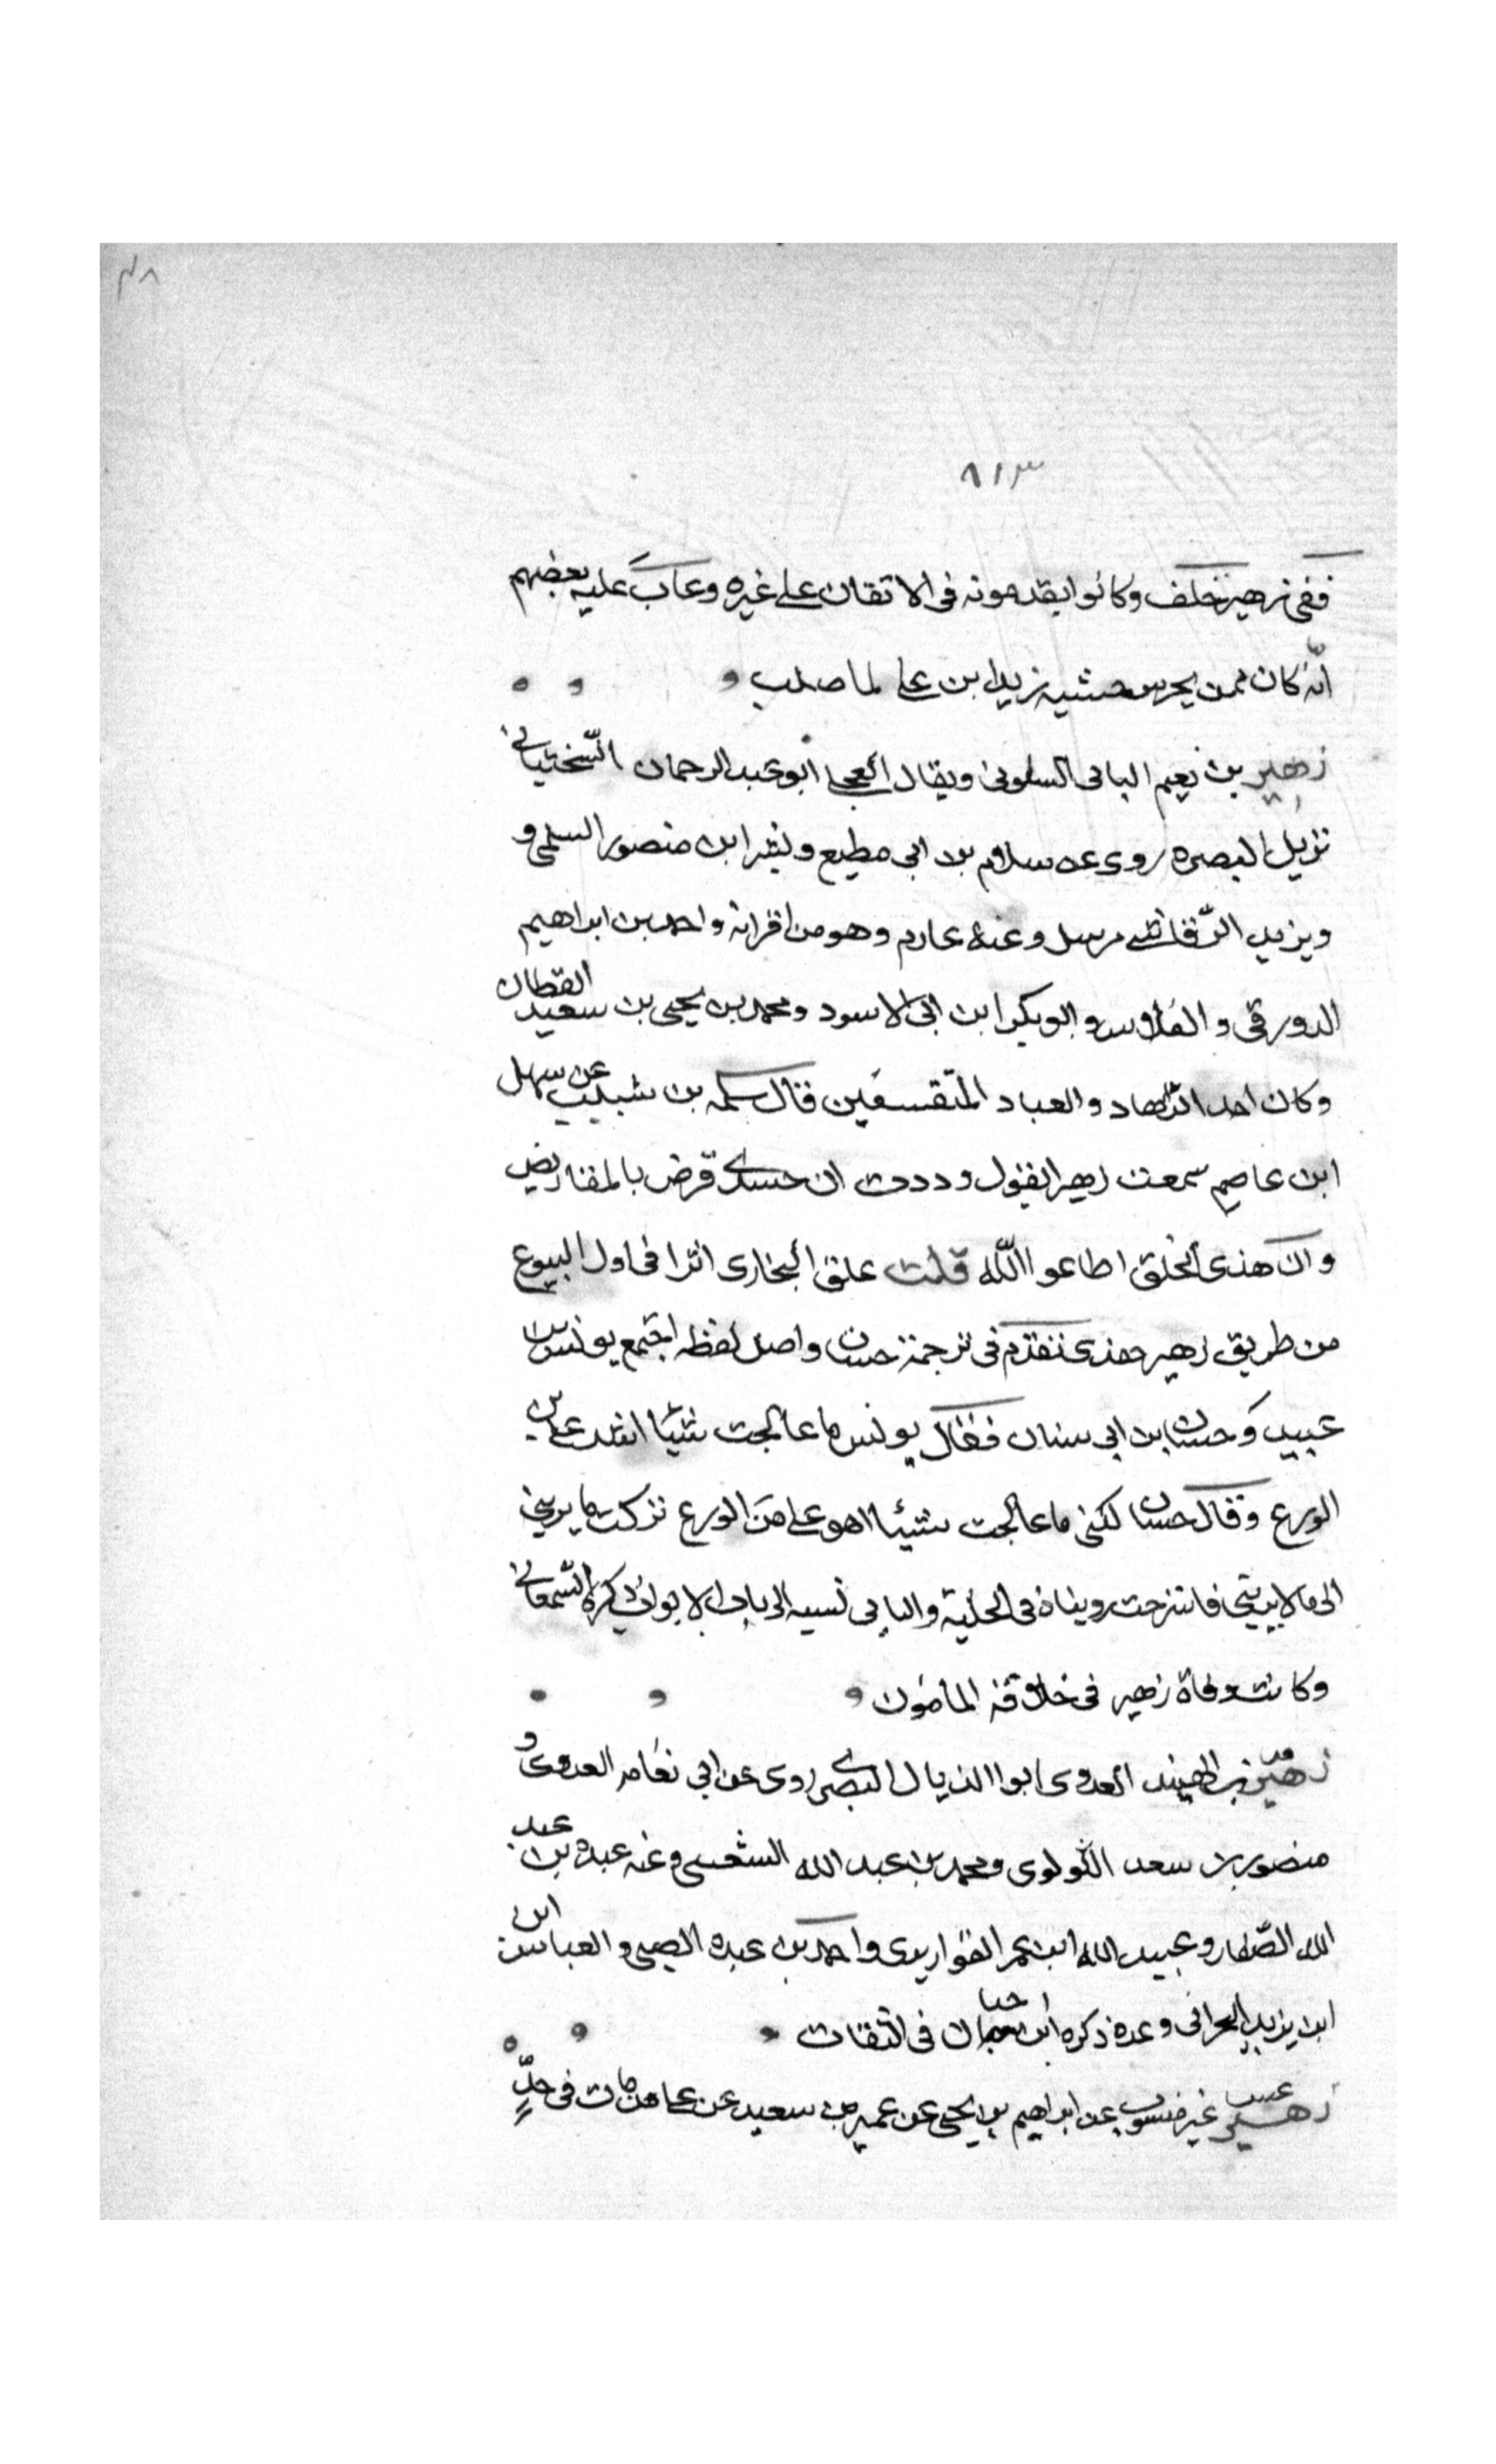 ٤٨
٨١٣
ففى زهير خلف وكانوا يقدمونه فى الاتقان على غيره وعاب عليه بعضهم
انّه كان ممن يحرس خشبه زيد ابن على لما صلب
زهير بن نعيم البابى السلولى ويقال العجلى ابو عبد الرحمان السّختيانى
نزيل البصره روى عن سلام بن ابى مطيع وبشر ابن منصور السلمى و
ويزيد الرّقاشى مرسل وعنه عارم وهو من اقرانه واحمد بن ابراهيم
الدورقى و الفلاس وابو بكر ابن ابى الاسود ومحمد بن يحيى بن سعيد القطان
وكان احد الزّهاد والعباد المتقشفين قال سلمه بن شبيب عن سهل
ابن عاصم سمعت زهير ايقول وددت ان حسدى قرض بالمقاريض
وان هذى الخلق اطاعوا اللّه قلت علق البخارى اثرا فى اول البيوع
من طريق زهير هذى تقدّم فى ترجمة حسان واصل لفظه اجتمع يونس بن
عبيد وحسان بن ابى سنان فقال يونس ما عالجت شيئا اشد على من
الورع وقال حسان لكنى ما عالجت شيئا اهو على من الورع تركت ما يريبنى
الى ما لا يريبنى فاسترحت رويناه فى الحلية والبابى نسبه الى باب الابواب ذكره السّمعانى
وكانت وفاة زهير فى خلافة المامون
زهير بن الهنيد العدوى ابوا الذيال البصرى روى عن ابى نعامه العدوى و
منصور بن سعد اللّولوى ومحمد بن عبد الله الشعيثى وعنه عبده بن عبد
الله الصّفار وعبيد الله ابن عمر القواريرى واحمد بن عبده الضبى والعباس ابن
ابن يزيد البحرانى وعده ذكره ابن حبان فى الثقات
زهير غير منسوب عن ابراهيم بن يحيى عن عمير بن سعيد عن على من مات فى حدٍّ